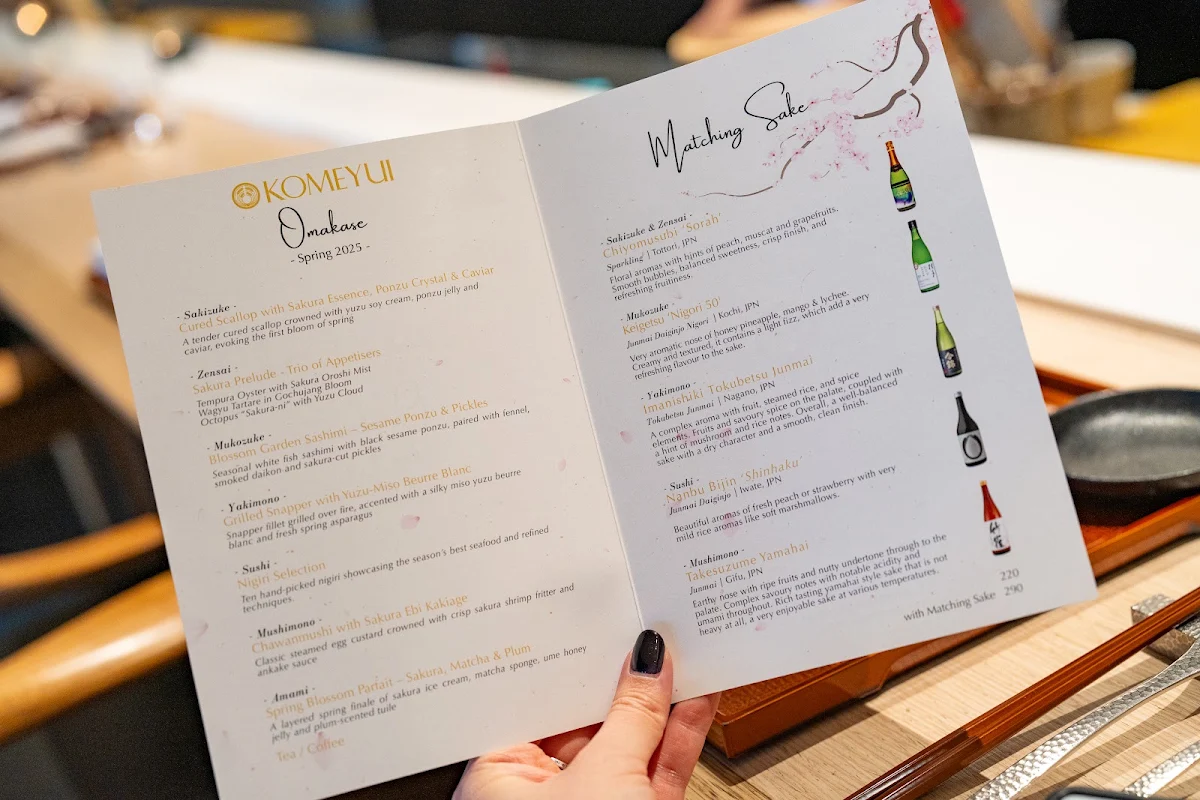 KOMEYUI
Omakase
- Spring 2025 -
- Sakizuke -
Cured Scallop with Sakura Essence, Ponzu Crystal & Caviar
A tender cured scallop crowned with yuzu soy cream, ponzu jelly and
caviar, evoking the first bloom of spring
- Zensai -
Sakura Prelude - Trio of Appetisers
Tempura Oyster with Sakura Oroshi Mist
Wagyu Tartare in Gochujang Bloom
Octopus "Sakura-ni" with Yuzu Cloud
- Mukozuke -
Blossom Garden Sashimi – Sesame Ponzu & Pickles
Seasonal white fish sashimi with black sesame ponzu, paired with fennel,
smoked daikon and sakura-cut pickles
- Yakimono -
Grilled Snapper with Yuzu-Miso Beurre Blanc
Snapper fillet grilled over fire, accented with a silky miso yuzu beurre
blanc and fresh spring asparagus
- Sushi -
Nigiri Selection
Ten hand-picked nigiri showcasing the season's best seafood and refined
techniques.
- Mushimono -
Chawanmushi with Sakura Ebi Kakiage
Classic steamed egg custard crowned with crisp sakura shrimp fritter and
ankake sauce
- Amami -
Spring Blossom Parfait – Sakura, Matcha & Plum
A layered spring finale of sakura ice cream, matcha sponge, ume honey
jelly and plum-scented tuile
Tea / Coffee
Matching Sake
- Sakizuke & Zensai -
Chiyomusubi 'Sorah'
Sparkling | Tottori, JPN
Floral aromas with hints of peach, muscat and grapefruits.
Smooth bubbles, balanced sweetness, crisp finish, and
refreshing fruitiness.
- Mukozuke -
Keigetsu 'Nigori 50'
Junmai Daiginjo Nigori | Kochi, JPN
Very aromatic nose of honey pineapple, mango & lychee.
Creamy and textured, it contains a light fizz, which add a very
refreshing flavour to the sake.
- Yakimono -
Imanishiki Tokubetsu Junmai
Tokubetsu Junmai | Nagano, JPN
A complex aroma with fruit, steamed rice, and spice
elements. Fruits and savoury spice on the palate, coupled with
a hint of mushroom and rice notes. Overall, a well-balanced
sake with a dry character and a smooth, clean finish.
- Sushi -
Nanbu Bijin 'Shinhaku
Junmai Daiginjo | Iwate, JPN
Beautiful aromas of fresh peach or strawberry with very
mild rice aromas like soft marshmallows.
- Mushimono -
Takesuzume Yamahai
Junmai | Gifu, JPN
Earthy nose with ripe fruits and nutty undertone through to the
palate. Complex savoury notes with notable acidity and
umami throughout. Rich tasting yamahai style sake that is not
heavy at all, a very enjoyable sake at various temperatures.
220
with Matching Sake 290